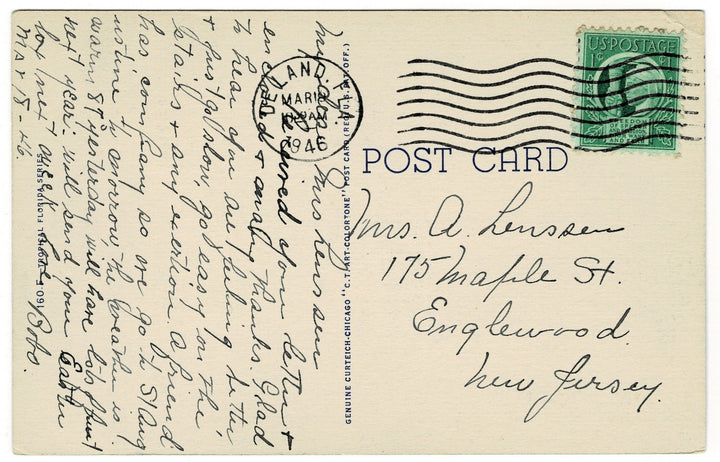 My dear Mrs Lenssen
Received your letter +
enclosed + many thanks. Glad
to hear you are feeling better
+ just go slow, go easy on the
stairs + any exertion. A friend
has company so we go to St Aug
ustine tomorrow, the weather is
warm, 89 yesterday, will have lots of fruit
next year. will send your Easter
box next week Love Bobo.
Mar 18-46.
5-160-TROPICAL FLORIDA SERIES
GENUINE CURTEICH-CHICAGO "C.T. ART-COLORTONE" POST CARD (REG. U.S. PAT. OFF.)
DELAND, FLA.
MAR 19
1946
U.S. POSTAGE
1¢ 1¢
FREEDOM
OF SPEECH
AND RELIGION
FROM WANT
AND FEAR
POST CARD
Mrs. A. Lenssen
175 Maple St.
Englewood
New Jersey.